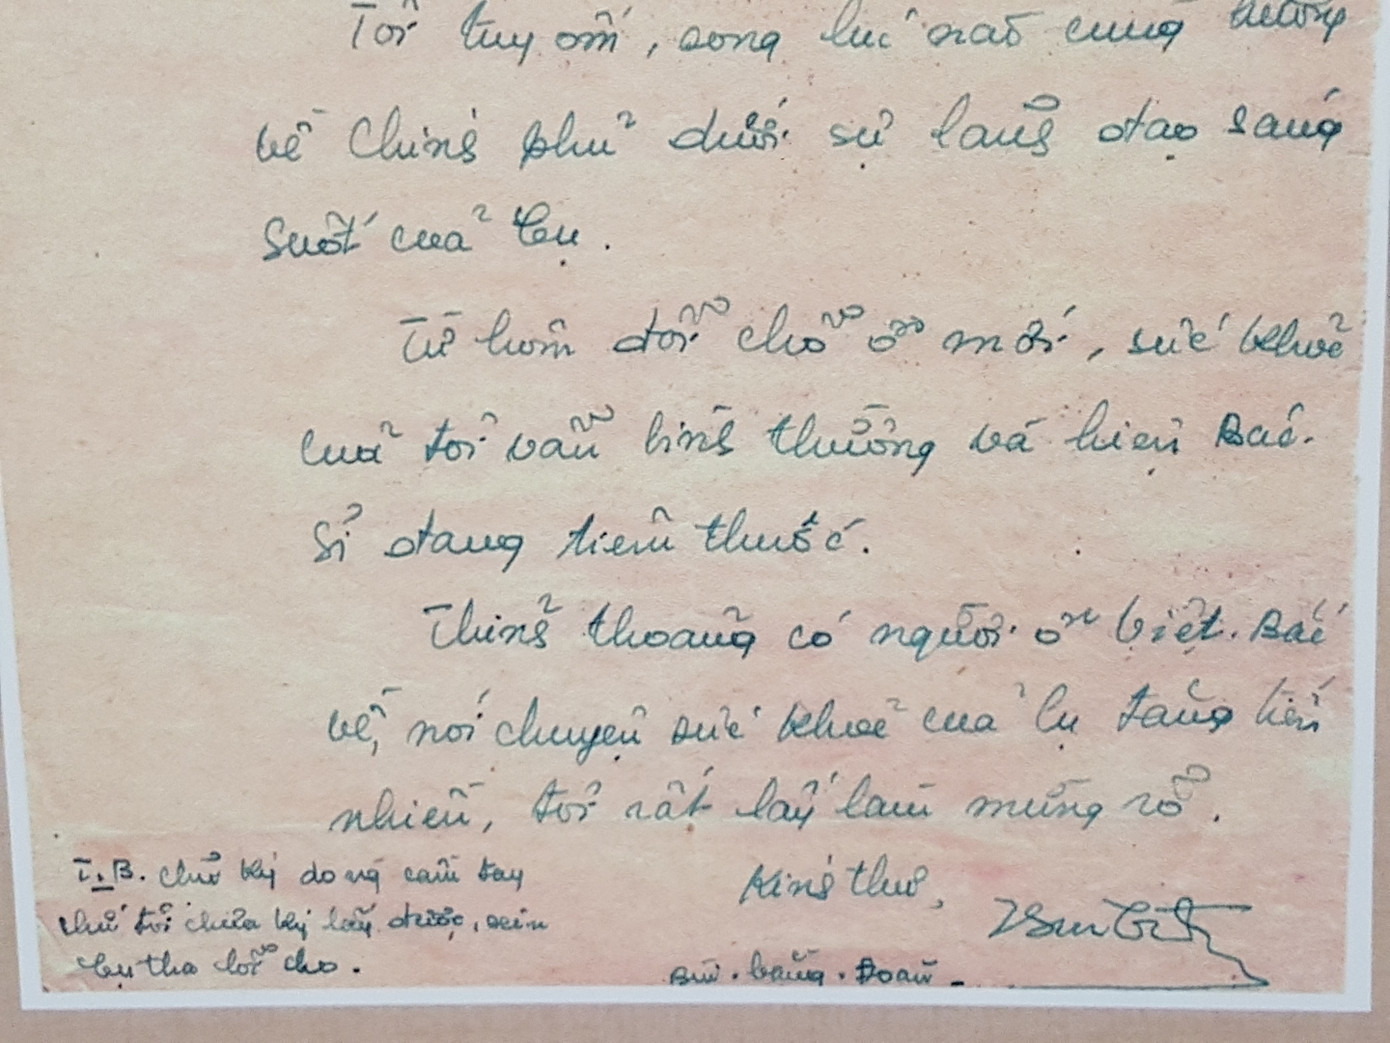 Tôi tuy ốm, song lúc nào cũng hướng
về Chính phủ dưới sự lãnh đạo sáng
suốt của Cụ.
Từ hôm đổi chỗ ở mới, sức khoẻ
của tôi vẫn bình thường và hiện Bác
sĩ đang tiêm thuốc.
Thỉnh thoảng có người ở Việt Bắc
về, nói chuyện sức khoẻ của Cụ tăng tiến
nhiều, tôi rất lấy làm mừng rỡ.
Kính thư,
Bùi-Bằng-Đoàn
T.B. Chữ ký do người cầm tay
chứ tôi chưa ký lấy được, xin
Cụ tha lỗi cho.